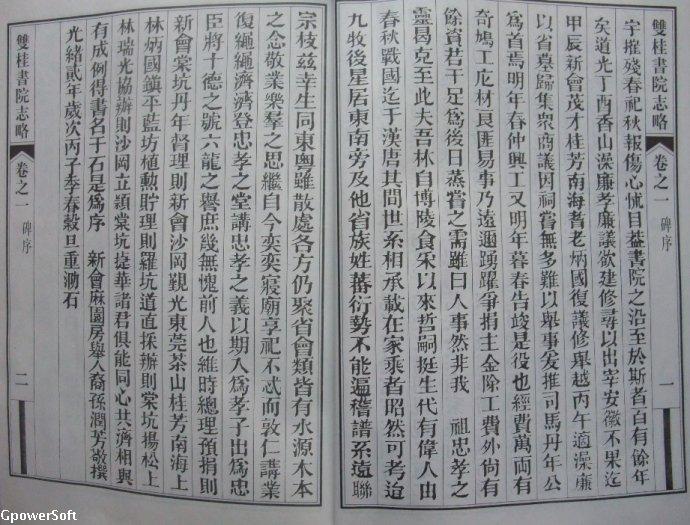 雙桂書院志略
卷之一
碑序
一
宇摧殘春祀秋報傷心怵目益書院之沿至於斯者百有餘年
矣道光丁酉香山澡廉孝廉議欲建修尋以出宰安徽不果迄
甲辰新會茂才桂芳南海耆老炳國復議修舉越丙午適澡廉
以省墓歸集眾商議因祠嘗無多難以舉事爰推司馬丹年公
爲首焉明年春仲興工又明年暮春告竣是役也經費萬両有
奇鳩工庀材艮匪易事乃遠邇踴躍爭捐主金除工費外尙有
餘資若干足爲後日蒸嘗之需雖曰人事然非我 祖忠孝之
靈曷克至此夫吾林自博陵食宋以來哲嗣挺生代有偉人由
春秋戰國迄于漢唐其間世系相承載在家乘者昭然可考迨
九牧後星居東南旁及他省族姓蕃衍勢不能遍稽譜系遠聯
宗枝兹幸生同東粤雖散處各方仍聚省會類皆有水源木本
之念敬業樂羣之思繼自今奕奕寢廟享祀不忒而敦仁講業
復繩繩濟濟登忠孝之堂講忠孝之義以期入爲孝子出爲忠
臣將十德之號六龍之譽庶幾無愧前人也維時總理預捐則
新會棠坑丹年督理則新會沙岡覲光東莞茶山桂芳南海上
林炳國鎮平藍坊植勲貯理則羅坑道直採辦則棠坑揚松上
林瑞光協辦則沙岡立穎棠坑捷華諸君俱能同心共濟相與
有成例得書名于石是爲序 新會麻園房舉人裔孫潤芳敬撰
光緒貳年歲次丙子季春穀旦重泐石
雙桂書院志略
卷之一
碑序
二
GpowerSoft